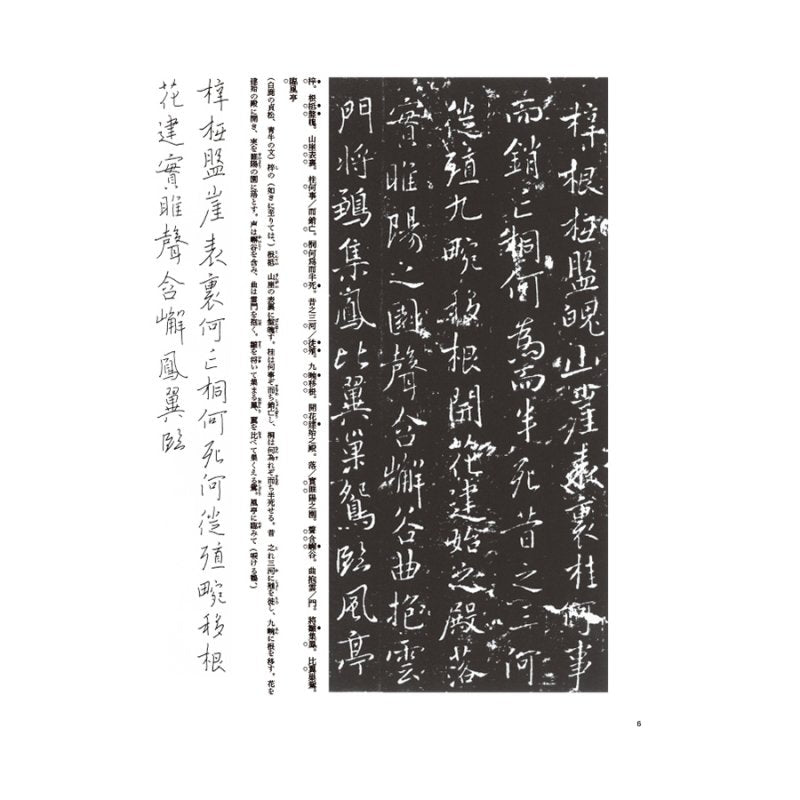 梓根柢盤魄山崖表裏桂何事
而銷亡桐何爲而半死昔之三河
徙殖九畹移根開花建始之殿落
實睢陽之園聲含嶰谷曲抱雲
門將鵄集鳳比翼巢鴛臨風亭
梓。根柢盤魄。山崖表裏。桂何事／而銷亡。桐何爲而半死。昔之三河／徙殖。九畹移根。開花建始之殿。落／實睢陽之園。聲含嶰谷。曲抱雲／門。將鶵集鳳。比翼巢鴛。
臨風亭
(白鹿の貞松、青牛の文)梓の(如きに至りては、)根柢 山崖の表裏に盤魄す。桂は何事ぞ而ち銷亡し、桐は何為れぞ而ち半死せる。昔 之れ三河に殖を徙し、九畹に根を移す。花を
建始の殿に開き、実を睢陽の園に落とす。声は嶰谷を含み、曲は雲門を抱く。鶵を将いて集まる鳳、翼を比べて巣くえる鴛。風亭に臨みて(唳ける鶴、)
梓柢盤崖表裏何亡桐何死何徙殖畹移根
花建實睢聲含嶰鳳翼臨
6